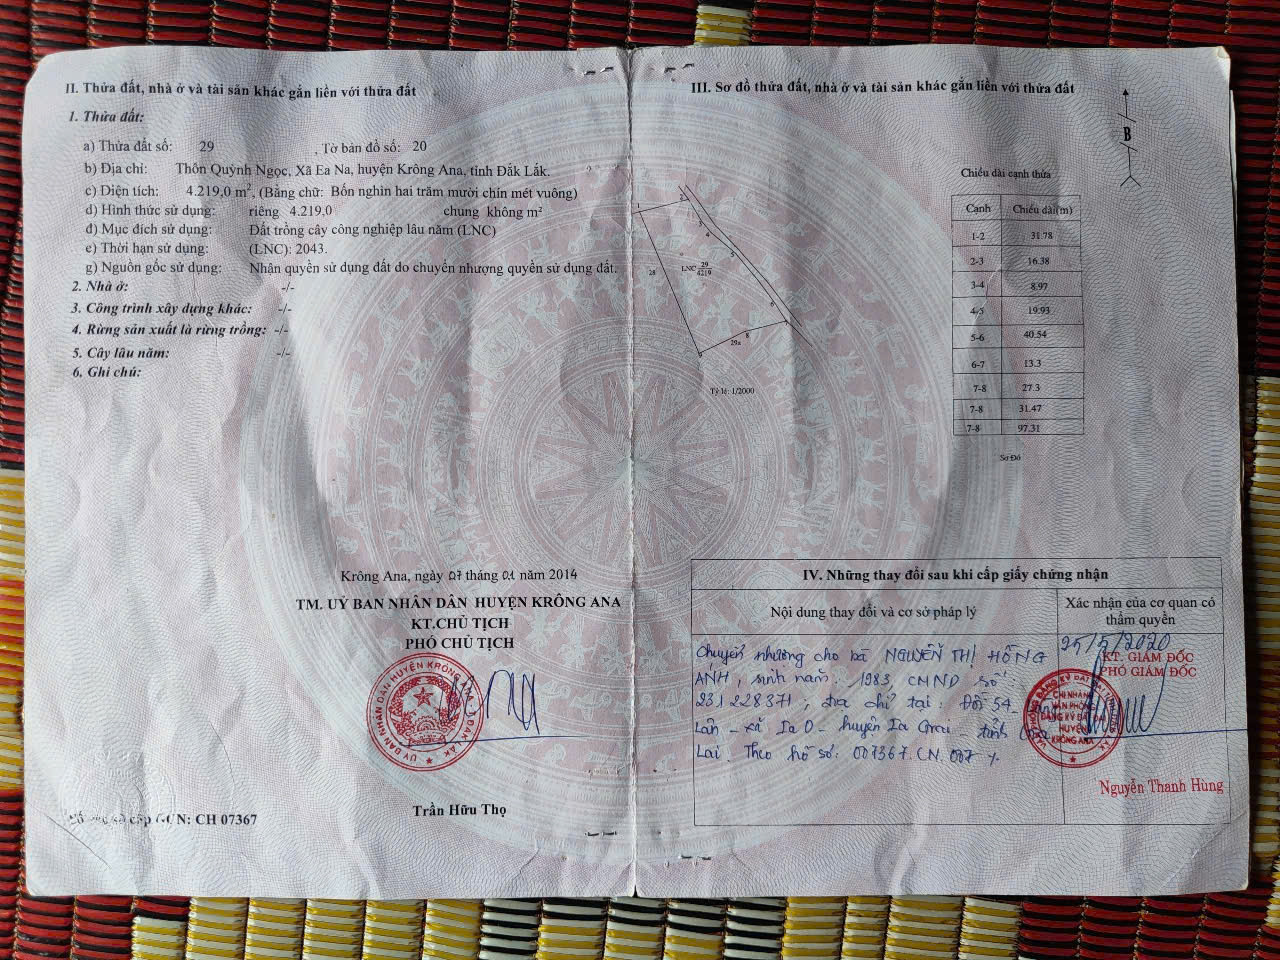 II. Thửa đất, nhà ở và tài sản khác gắn liền với thửa đất
1. Thửa đất:
a) Thửa đất số: 29 , Tờ bản đồ số: 20
b) Địa chỉ: Thôn Quỳnh Ngọc, Xã Ea Na, huyện Krông Ana, tỉnh Đắk Lắk.
c) Diện tích: 4.219,0 m², (Bằng chữ: Bốn nghìn hai trăm mười chín mét vuông)
d) Hình thức sử dụng: riêng 4.219,0 chung không m²
đ) Mục đích sử dụng: Đất trồng cây công nghiệp lâu năm (LNC)
e) Thời hạn sử dụng: (LNC): 2043.
g) Nguồn gốc sử dụng: Nhận quyền sử dụng đất do chuyển nhượng quyền sử dụng đất.
2. Nhà ở: -/-
3. Công trình xây dựng khác: -/-
4. Rừng sản xuất là rừng trồng: -/-
5. Cây lâu năm: -/-
6. Ghi chú:
Krông Ana, ngày 07 tháng 01 năm 2014
TM. UỶ BAN NHÂN DÂN HUYỆN KRÔNG ANA
KT.CHỦ TỊCH
PHÓ CHỦ TỊCH
UỶ BAN NHÂN DÂN HUYỆN KRÔNG ANA T.ĐẮK LẮK
Trần Hữu Thọ
cấp GCN: CH 07367
III. Sơ đồ thửa đất, nhà ở và tài sản khác gắn liền với thửa đất
B
1
2
3
4
5
6
7
8
9
28
LNC 29
4219
29a
Tỷ lệ: 1/2000
Chiều dài cạnh thửa
Cạnh Chiều dài(m)
1-2 31.78
2-3 16.38
3-4 8.97
4-5 19.93
5-6 40.54
6-7 13.3
7-8 27.3
7-8 31.47
7-8 97.31
Sơ Đồ
IV. Những thay đổi sau khi cấp giấy chứng nhận
Nội dung thay đổi và cơ sở pháp lý
Xác nhận của cơ quan có
thẩm quyền
Chuyển nhượng cho bà NGUYỄN THỊ HỒNG
ÁNH, sinh năm: 1983, CMND số:
231228371, địa chỉ tại: Đội 54
Lân - xã Ia O - huyện Ia Grai - tỉnh Gia
Lai. Theo hồ sơ: 007367.CN.007
25/5/2020
KT. GIÁM ĐỐC
PHÓ GIÁM ĐỐC
CHI NHÁNH
VĂN PHÒNG
ĐĂNG KÝ ĐẤT ĐAI
HUYỆN
KRÔNG ANA
Nguyễn Thanh Hùng